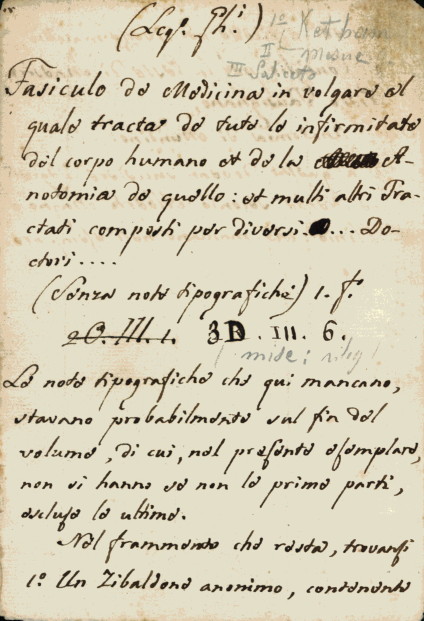 (Leg. Ghi.)
1º Ketham
II Mesue
III Saliceto
Fasiculo de Medicina in volgare el
quale tracta de tute le infirmitate
del corpo humano et de la A-
notomia de quello: et multi altri Tra-
ctati composti per diversi .... Do-
ctori....
(Senza note tipografiche) 1. f.
20. III. 1. 3D. III. 6.
(misc:
Le note tipografiche che qui mancano,
stavano probabilmente sul fin del
volume, di cui, nel presente esemplare,
non si hanno se non le prime parti,
escluse le ultime.
Nel frammento che resta, trovansi
1º. Un Zibaldone anonimo, contenente